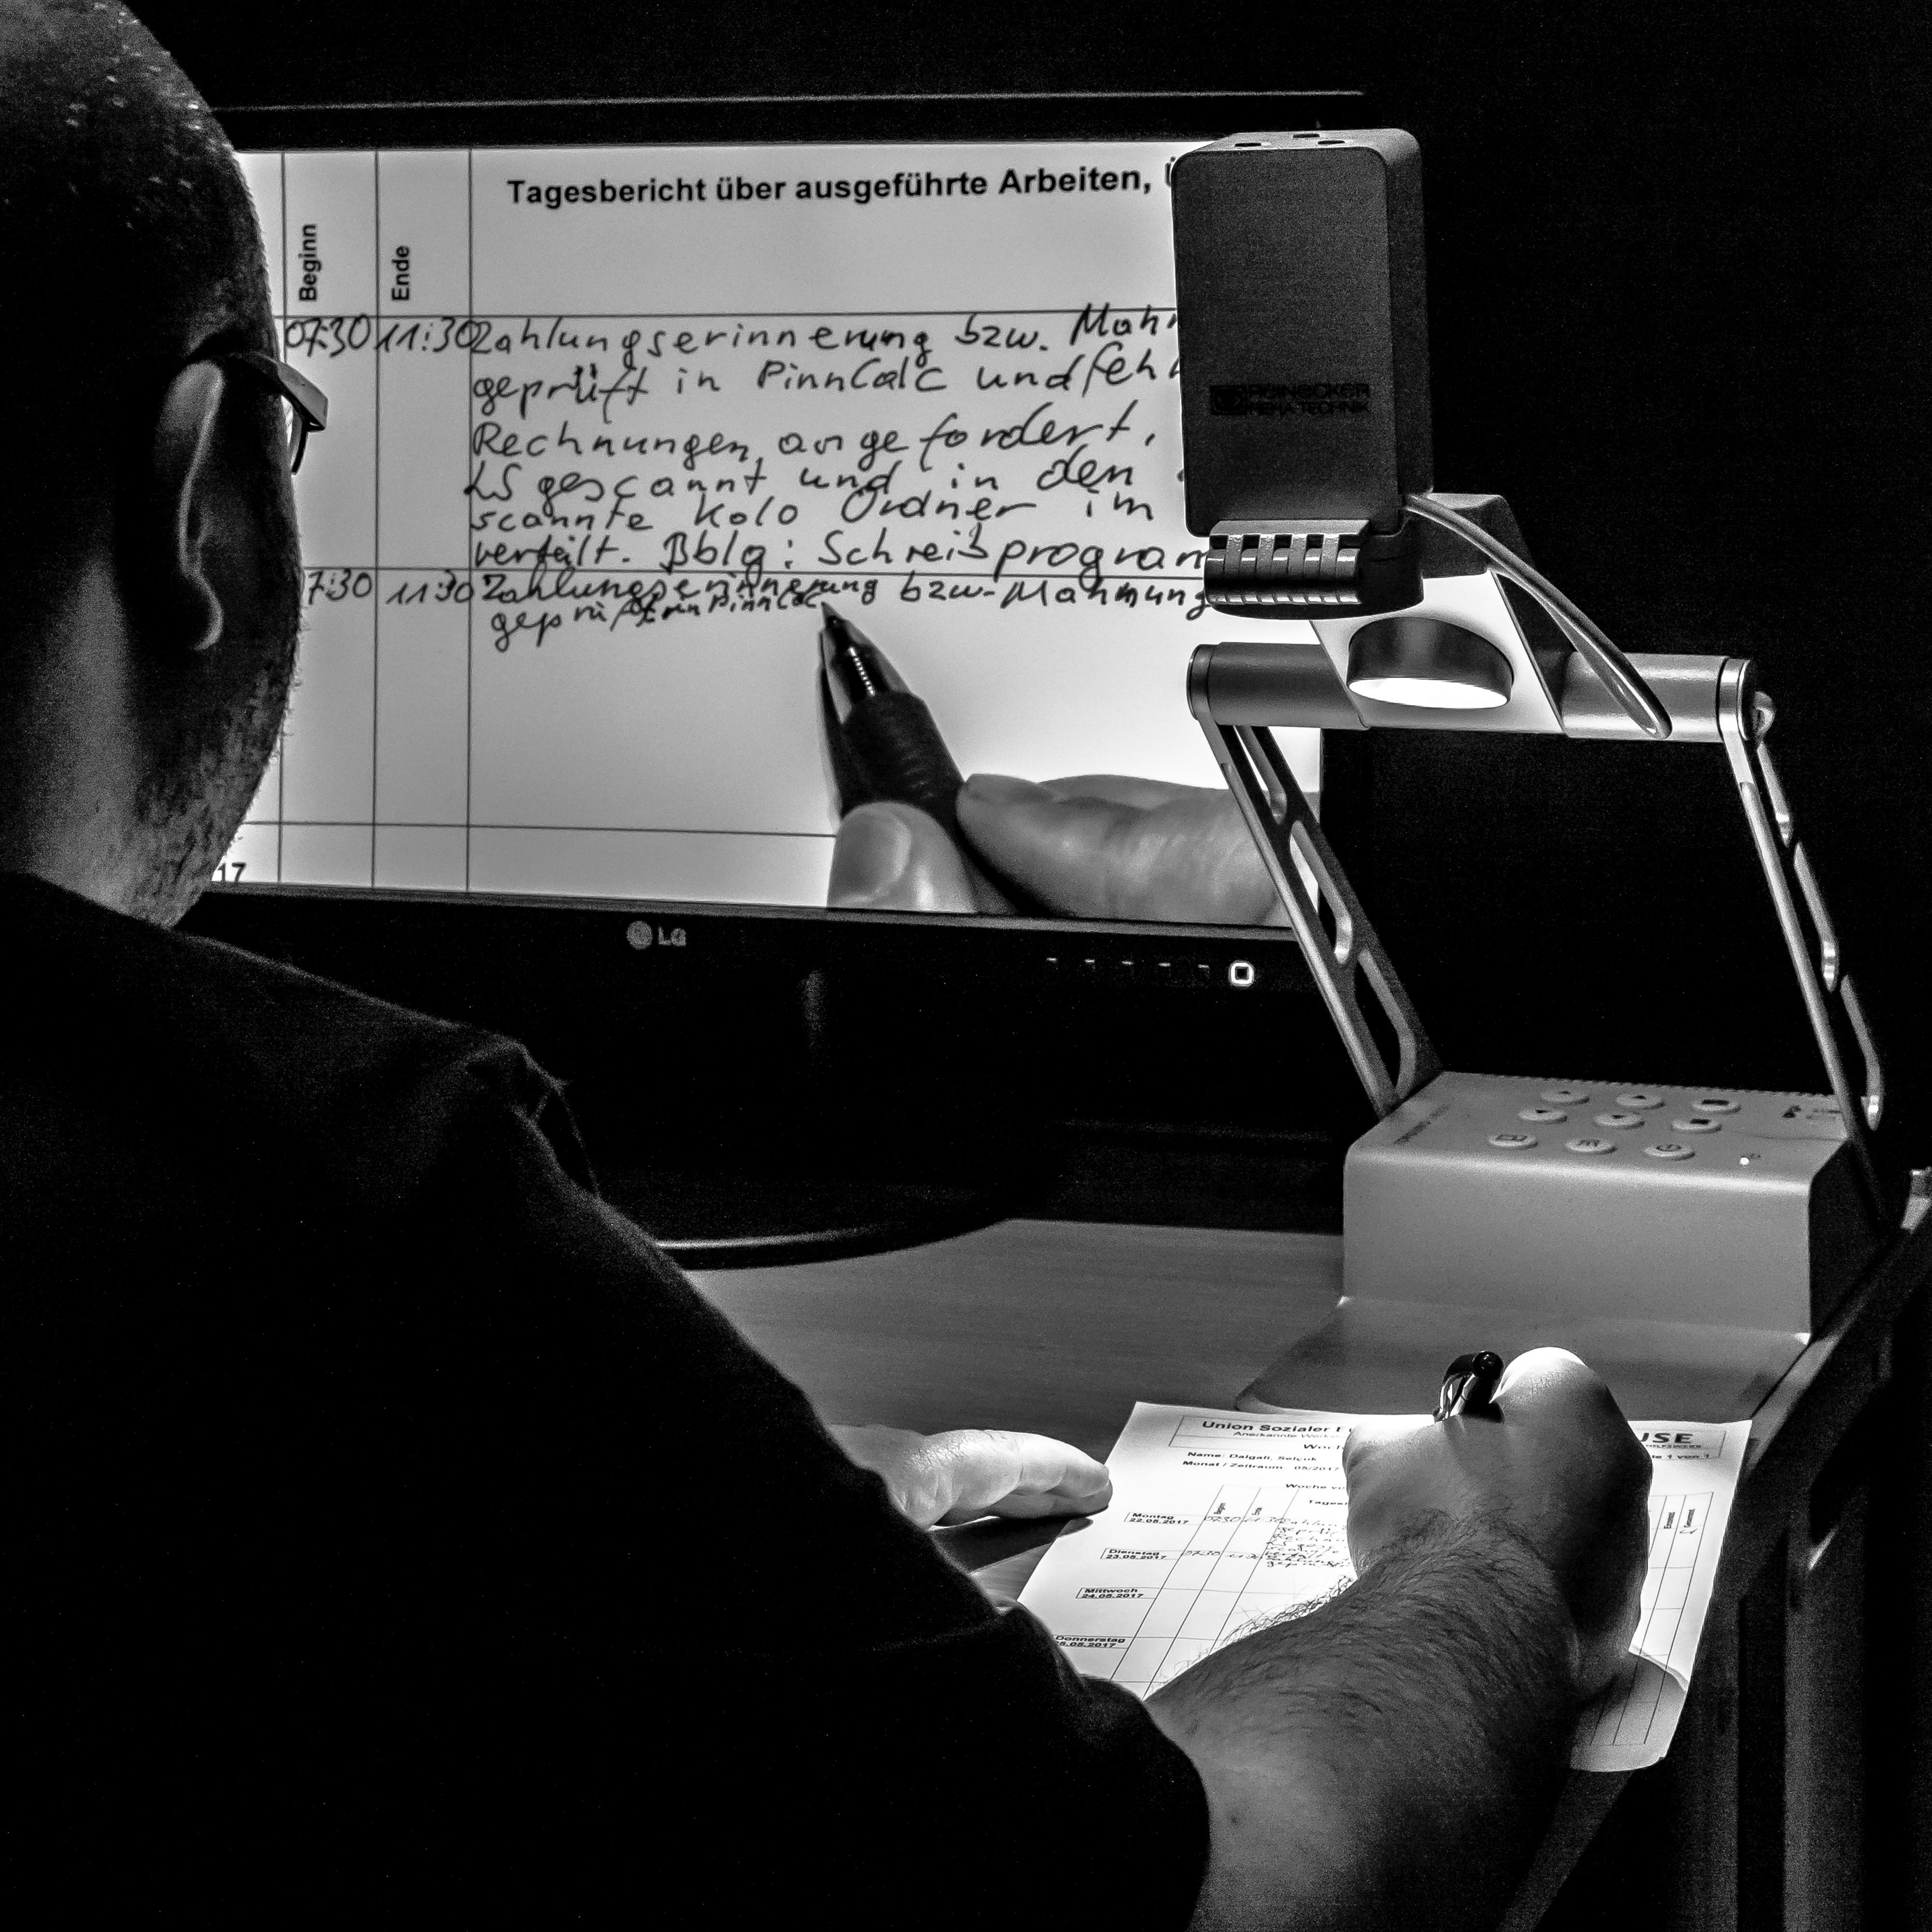 Tagesbericht über ausgeführte Arbeiten,
Beginn
Ende
07:30 11:30 Zahlungserinnerung bzw. Mahn
geprüft in PinnCalc und fehl
Rechnungen angefordert.
LS gescannt und in den
scannte Kolo Ordner im
verteilt. Bblg: Schreibprogram
7:30 11:30 Zahlungserinnerung bzw. Mahnung
geprüft in PinnCalc
17
LG
REINECKER
REHA TECHNIK
Union Sozialer
USE
Name: Dalgali, Selçuk
Monat / Zeitraum: 05/2017
1 von 1
Montag
22.05.2017
07:30 11:30
Dienstag
23.05.2017
Mittwoch
24.05.2017
Donnerstag
25.05.2017